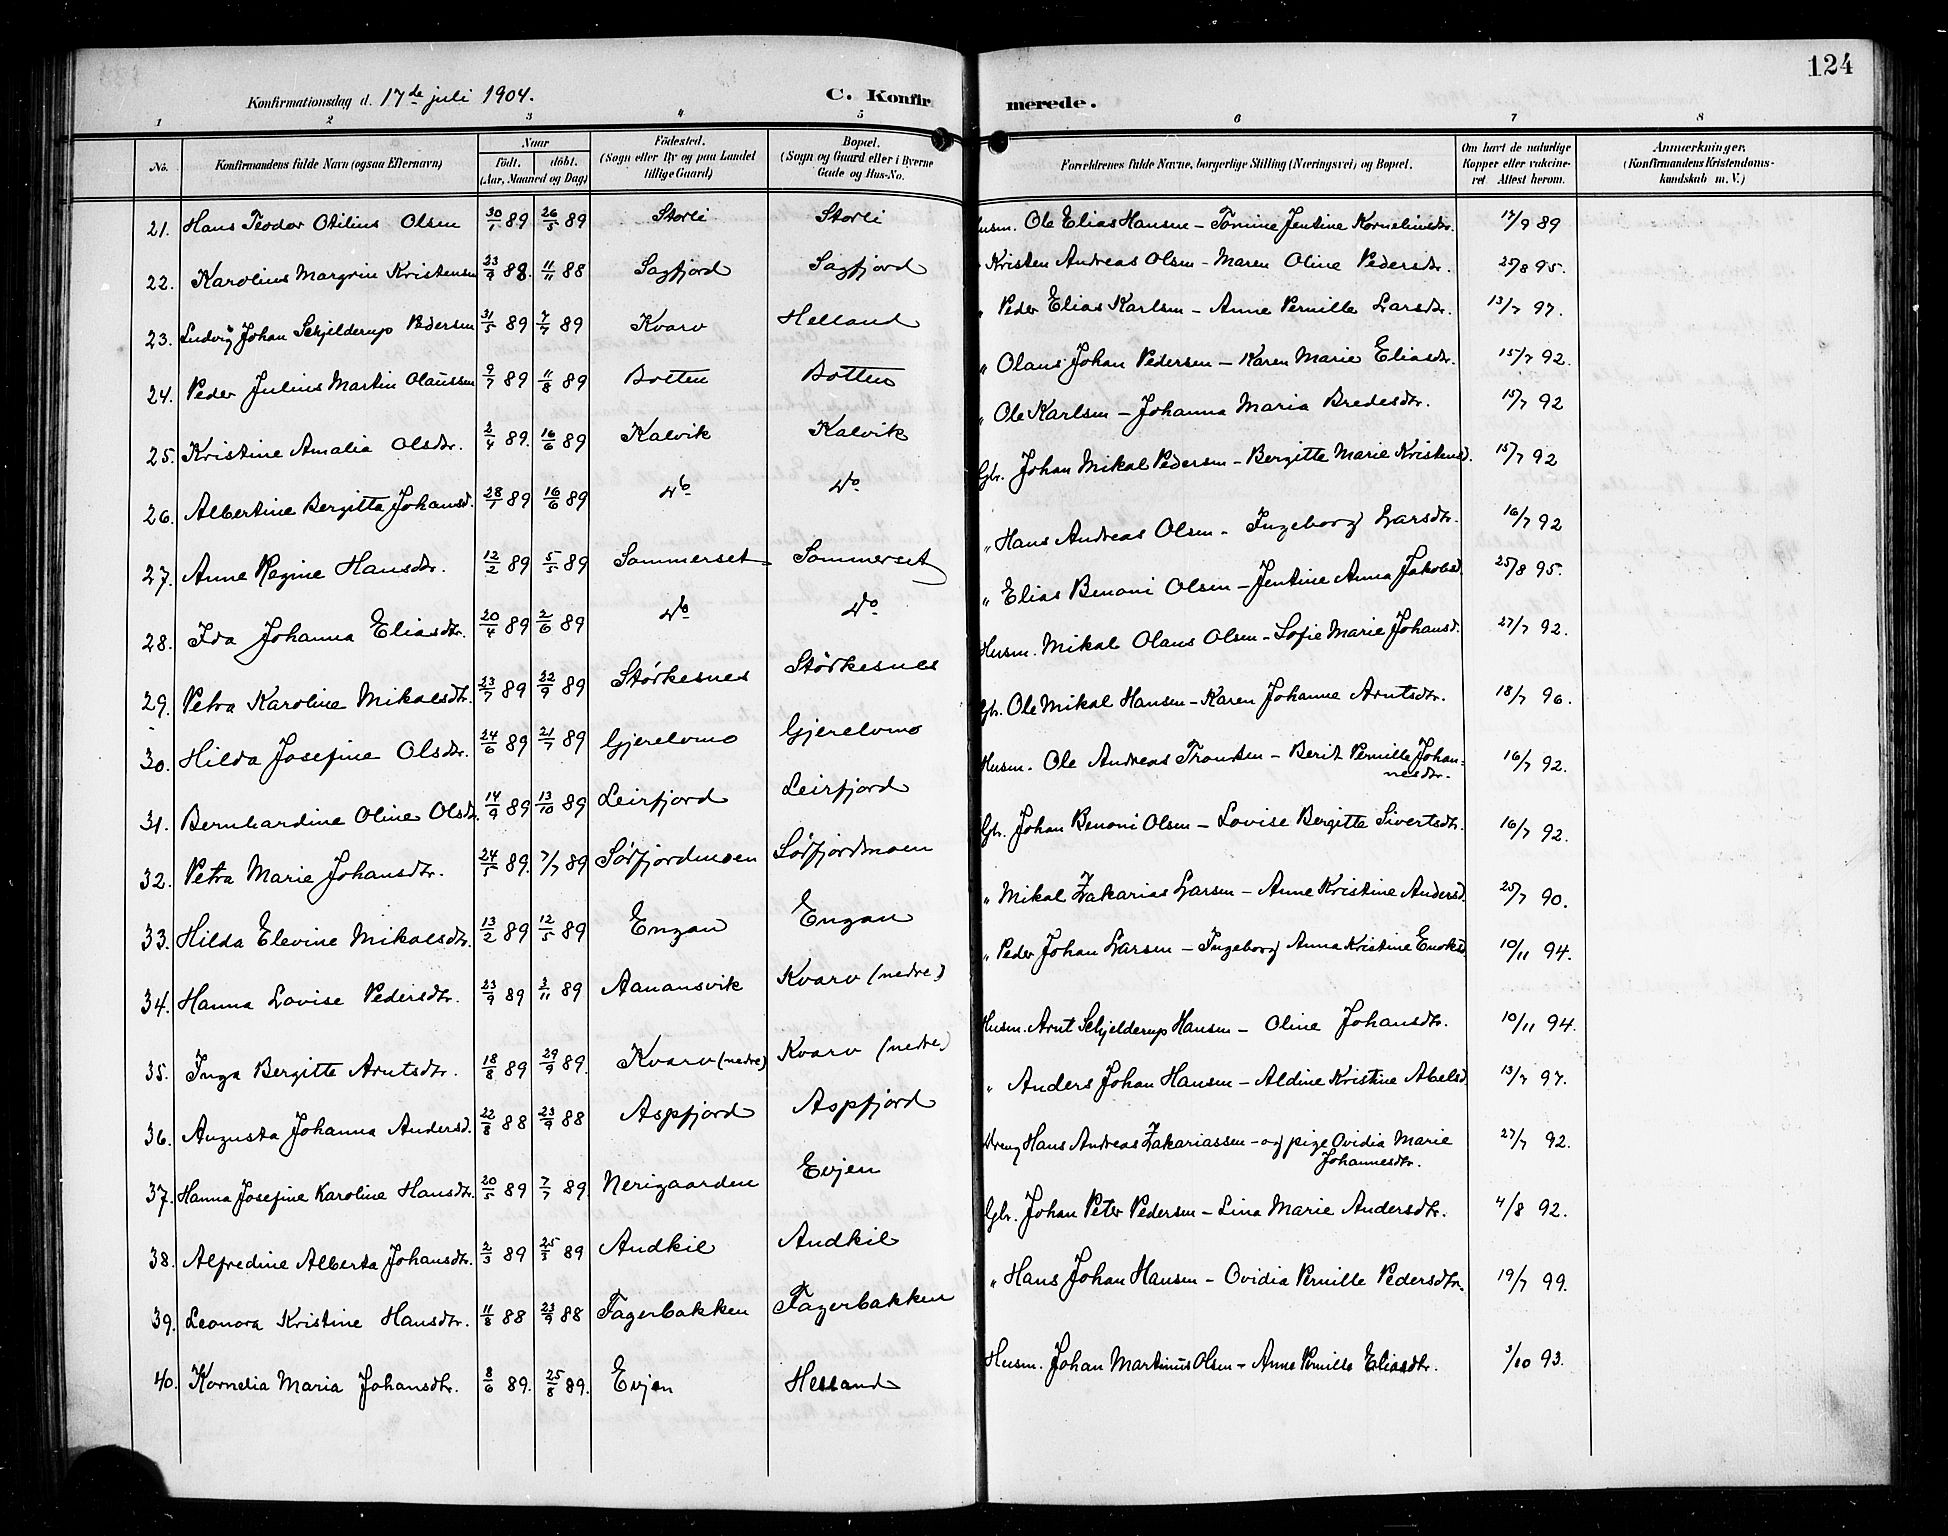 124
Konfirmationsdag d. 17de juli 1904. C. Konfirmerede.
1 2 3 4 5 6 7 8
No. Konfirmandens fulde Navn (ogsaa Efternavn) Naar født. døbt. (Aar, Maaned og Dag) Fødested. (Sogn eller By og paa Landet tillige Gaard) Bopæl. (Sogn og Gaard eller i Byerne Gade og Hus-No. Forældrenes fulde Navne, borgerlige Stilling (Næringsvei) og Bopæl. Om havt de naturlige Kopper eller vaccineret Attest herom. Anmærkninger. (Konfirmandens Kristendomskundskab m. V.)
21. Hans Teodor Otilius Olsen 30/1 89 26/5 89 Storli Storli Husm. Ole Elias Hansen - Tomine Jentine Korneliusdtr. 17/9 89
22. Karolius Margrin Kristensen 23/9 88. 11/11 88 Sagfjord Sagfjord " Kristen Andreas Olsen - Maren Oline Pedersdtr. 25/8 95.
23. Ludvig Johan Schjelderup Pedersen 31/5 89 7/7 89 Kvarv Helland " Peder Elias Karlsen - Anne Pernille Larsdtr. 13/7 97.
24. Peder Julius Martin Olaussen 9/7 89 11/8 89 Botten Botten " Olaus Johan Pedersen - Karen Marie Eliasdtr. 15/7 92.
25. Kristine Amalia Olsdtr. 2/4 89. 16/6 89 Kalvik Kalvik " Ole Karlsen - Johanna Maria Bredesdtr. 15/7 92
26. Albertine Bergitta Johansd. 28/1 89 16/6 89 do do Gbr. Johan Mikal Pedersen - Bergitte Marie Kristensd. 15/7 92
27. Anne Regine Hansdtr. 12/2 89 5/5 89 Sommerset Sommerset " Hans Andreas Olsen - Ingeborg Larsdtr. 16/7 92
28. Ida Johanna Eliasdtr. 20/4 89 2/6 89 do do " Elias Benoni Olsen - Jentine Anna Jakobsd. 25/8 95.
29. Petra Karoline Mikalsdtr. 23/7 89 22/9 89 Størkesnes Størkesnes Husm. Mikal Olaus Olsen - Sofie Marie Johansd. 27/7 92.
30. Hilda Josefine Olsdtr. 24/6 89 21/7 89 Gjerelvmo Gjerelvmo Gbr. Ole Mikal Hansen - Karen Johanne Arntsdtr. 18/7 96.
31. Bernhardine Oline Olsdtr. 14/9 89 13/10 89 Leirfjord Leirfjord Husm. Ole Andreas Trondsen - Berit Pernille Johannesdtr. 16/7 92.
32. Petra Marie Johansdtr. 24/5 89. 7/7 89 Sørfjordmoen Sørfjordmoen Gbr. Johan Benoni Olsen - Lovise Bergitte Sivertsdtr. 16/7 92.
33. Hilda Elevine Mikalsdtr. 13/2 89 12/5 89 Engan Engan " Mikal Zakarias Larsen - Anne Kristine Andersd. 25/7 90.
34. Hanna Lovise Pedersdtr. 23/9 89 3/11 89 Aanansvik Kvarv (nedre) " Peder Johan Larsen - Ingeborg Anna Kristine Enoksd. 10/11 94.
35. Inga Bergitte Arntsdtr. 18/8 89 29/9 89. Kvarv (nedre) Kvarv (nedre) Husm. Arnt Schjelderup Hansen - Oline Johansdtr. 10/11 94.
36. Augusta Johanna Andersd. 22/8 88 23/9 88 Aspfjord Aspfjord " Anders Johan Hansen - Aldine Kristine Abelsd. 13/7 97.
37. Hanna Josefine Karoline Hansdtr. 20/5 89 7/7 89. Nerigaarden Evjen Dreng Hans Andreas Zakariassen - og pige Ovidia Marie Johannesdtr. 27/7 92.
38. Alfredine Alberta Johansdtr. 2/3 89 25/3 89 Andkil Andkil Gbr. Johan Peter Pedersen - Lina Marie Andersdtr. 4/8 92.
39. Leonora Kristine Hansdtr. 11/8 88 23/9 88 Fagerbakken Fagerbakken " Hans Johan Hansen - Ovidia Pernille Pedersdtr. 19/7 99.
40. Kornelia Maria Johansdtr. 8/6 89. 25/8 89. Evjen Helland Husm. Johan Martinus Olsen - Anne Pernille Eliasdtr. 3/10 93.